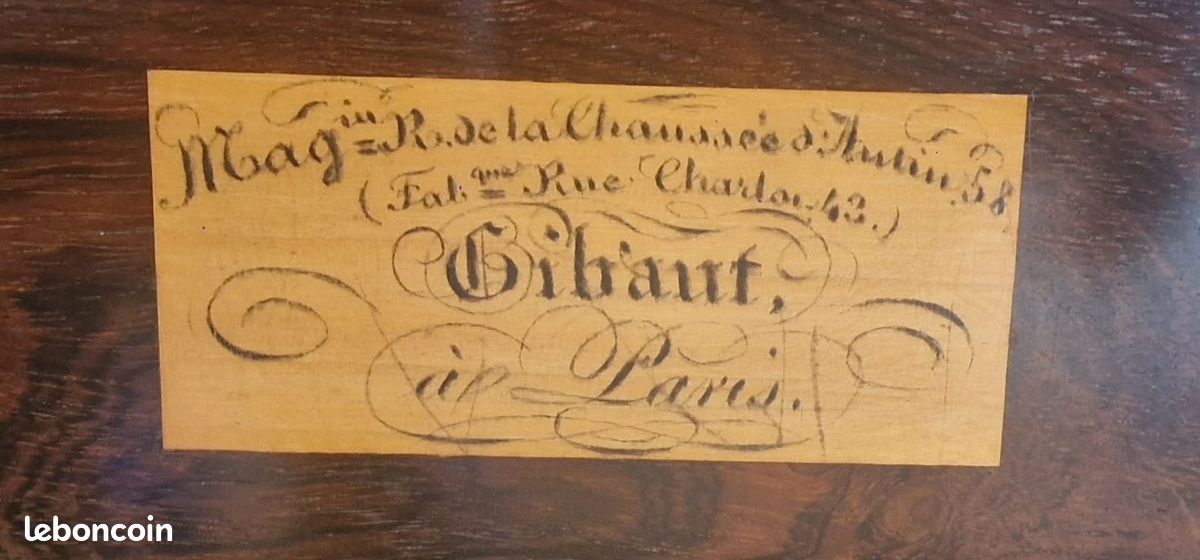 Mag.in R. de la Chaussée d'Antin, 58
(Fab.que Rue Charlot, 43.)
Gibaut,
à Paris.
leboncoin